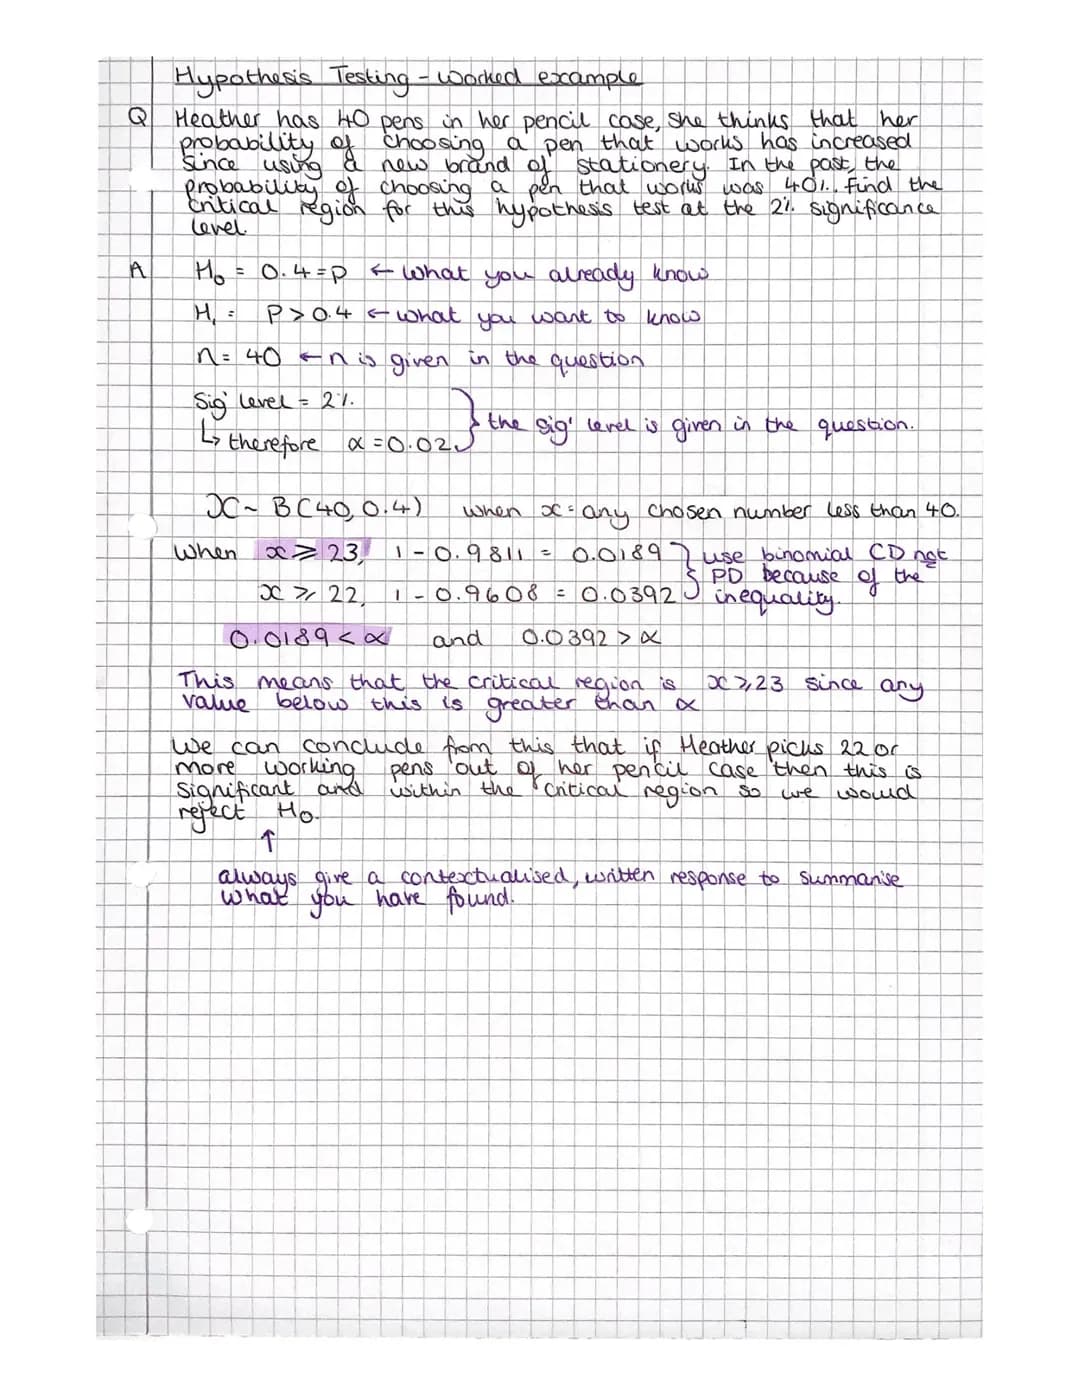 Hypothesis Testing - worked example
Q Heather has 40 pens in her pencil case, she thinks that her
probability of choosing a pen that works has increased
since using a new brand of stationery. In the past, the
probability of choosing a pen that works was 40%. Find the
critical region for this hypothesis test at the 2% significance
level.
A H₀ = 0.4=p ← what you already know
H₁ = P>0.4 ← what you want to know
n= 40 ← n is given in the question
Sig' level = 2%.
↳ therefore α =0.02. } the sig' level is given in the question.
X~ B(40, 0.4) when x= any chosen number less than 40.
when x ⩾ 23, 1 - 0.9811 = 0.0189 } use binomial CD not
PD because of the
x ⩾ 22, 1 - 0.9608 = 0.0392 inequality.
0.0189 < α and 0.0392 > α
This means that the critical region is x⩾23 since any
value below this is greater than α
We can conclude from this that if Heather picks 22 or
more working pens out of her pencil case then this is
significant and within the critical region so we would
reject H₀.
↑
always give a contextualised, written response to summarise
what you have found.